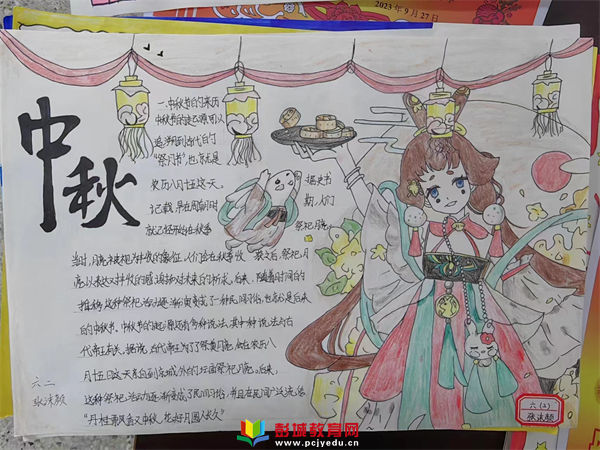 2023年9月27日
中秋
一、中秋节的来历
中秋节的起源可以
追溯到古代的
"祭月节",也就是
农历八月十五这天。
据史书
记载,早在周朝时
期,人们
就已经开始在秋季
祭祀月亮。
当时,月亮被视为丰收的象征,人们会在秋季收获之后,祭祀月
亮以表达对丰收的感谢和对未来的祈求。后来,随着时间的
推移,这种祭祀活动逐渐演变成了一种民间习俗,也就是后来
的中秋节。中秋节的起源还有多种说法,其中一种说法与古
代帝王有关。据说,古代帝王为了祭奠月亮,会在农历八
月十五日这天亲自到京城外的坛庙祭祀月亮。后来,
这种祭祀活动逐渐演变成了民间习俗,并且在民间广泛流传
"丹桂飘风金又中秋,花好月圆人长久"
六二
张沐颜
六(2)
张沐颜
彭城教育网
www.pcjyedu.cn